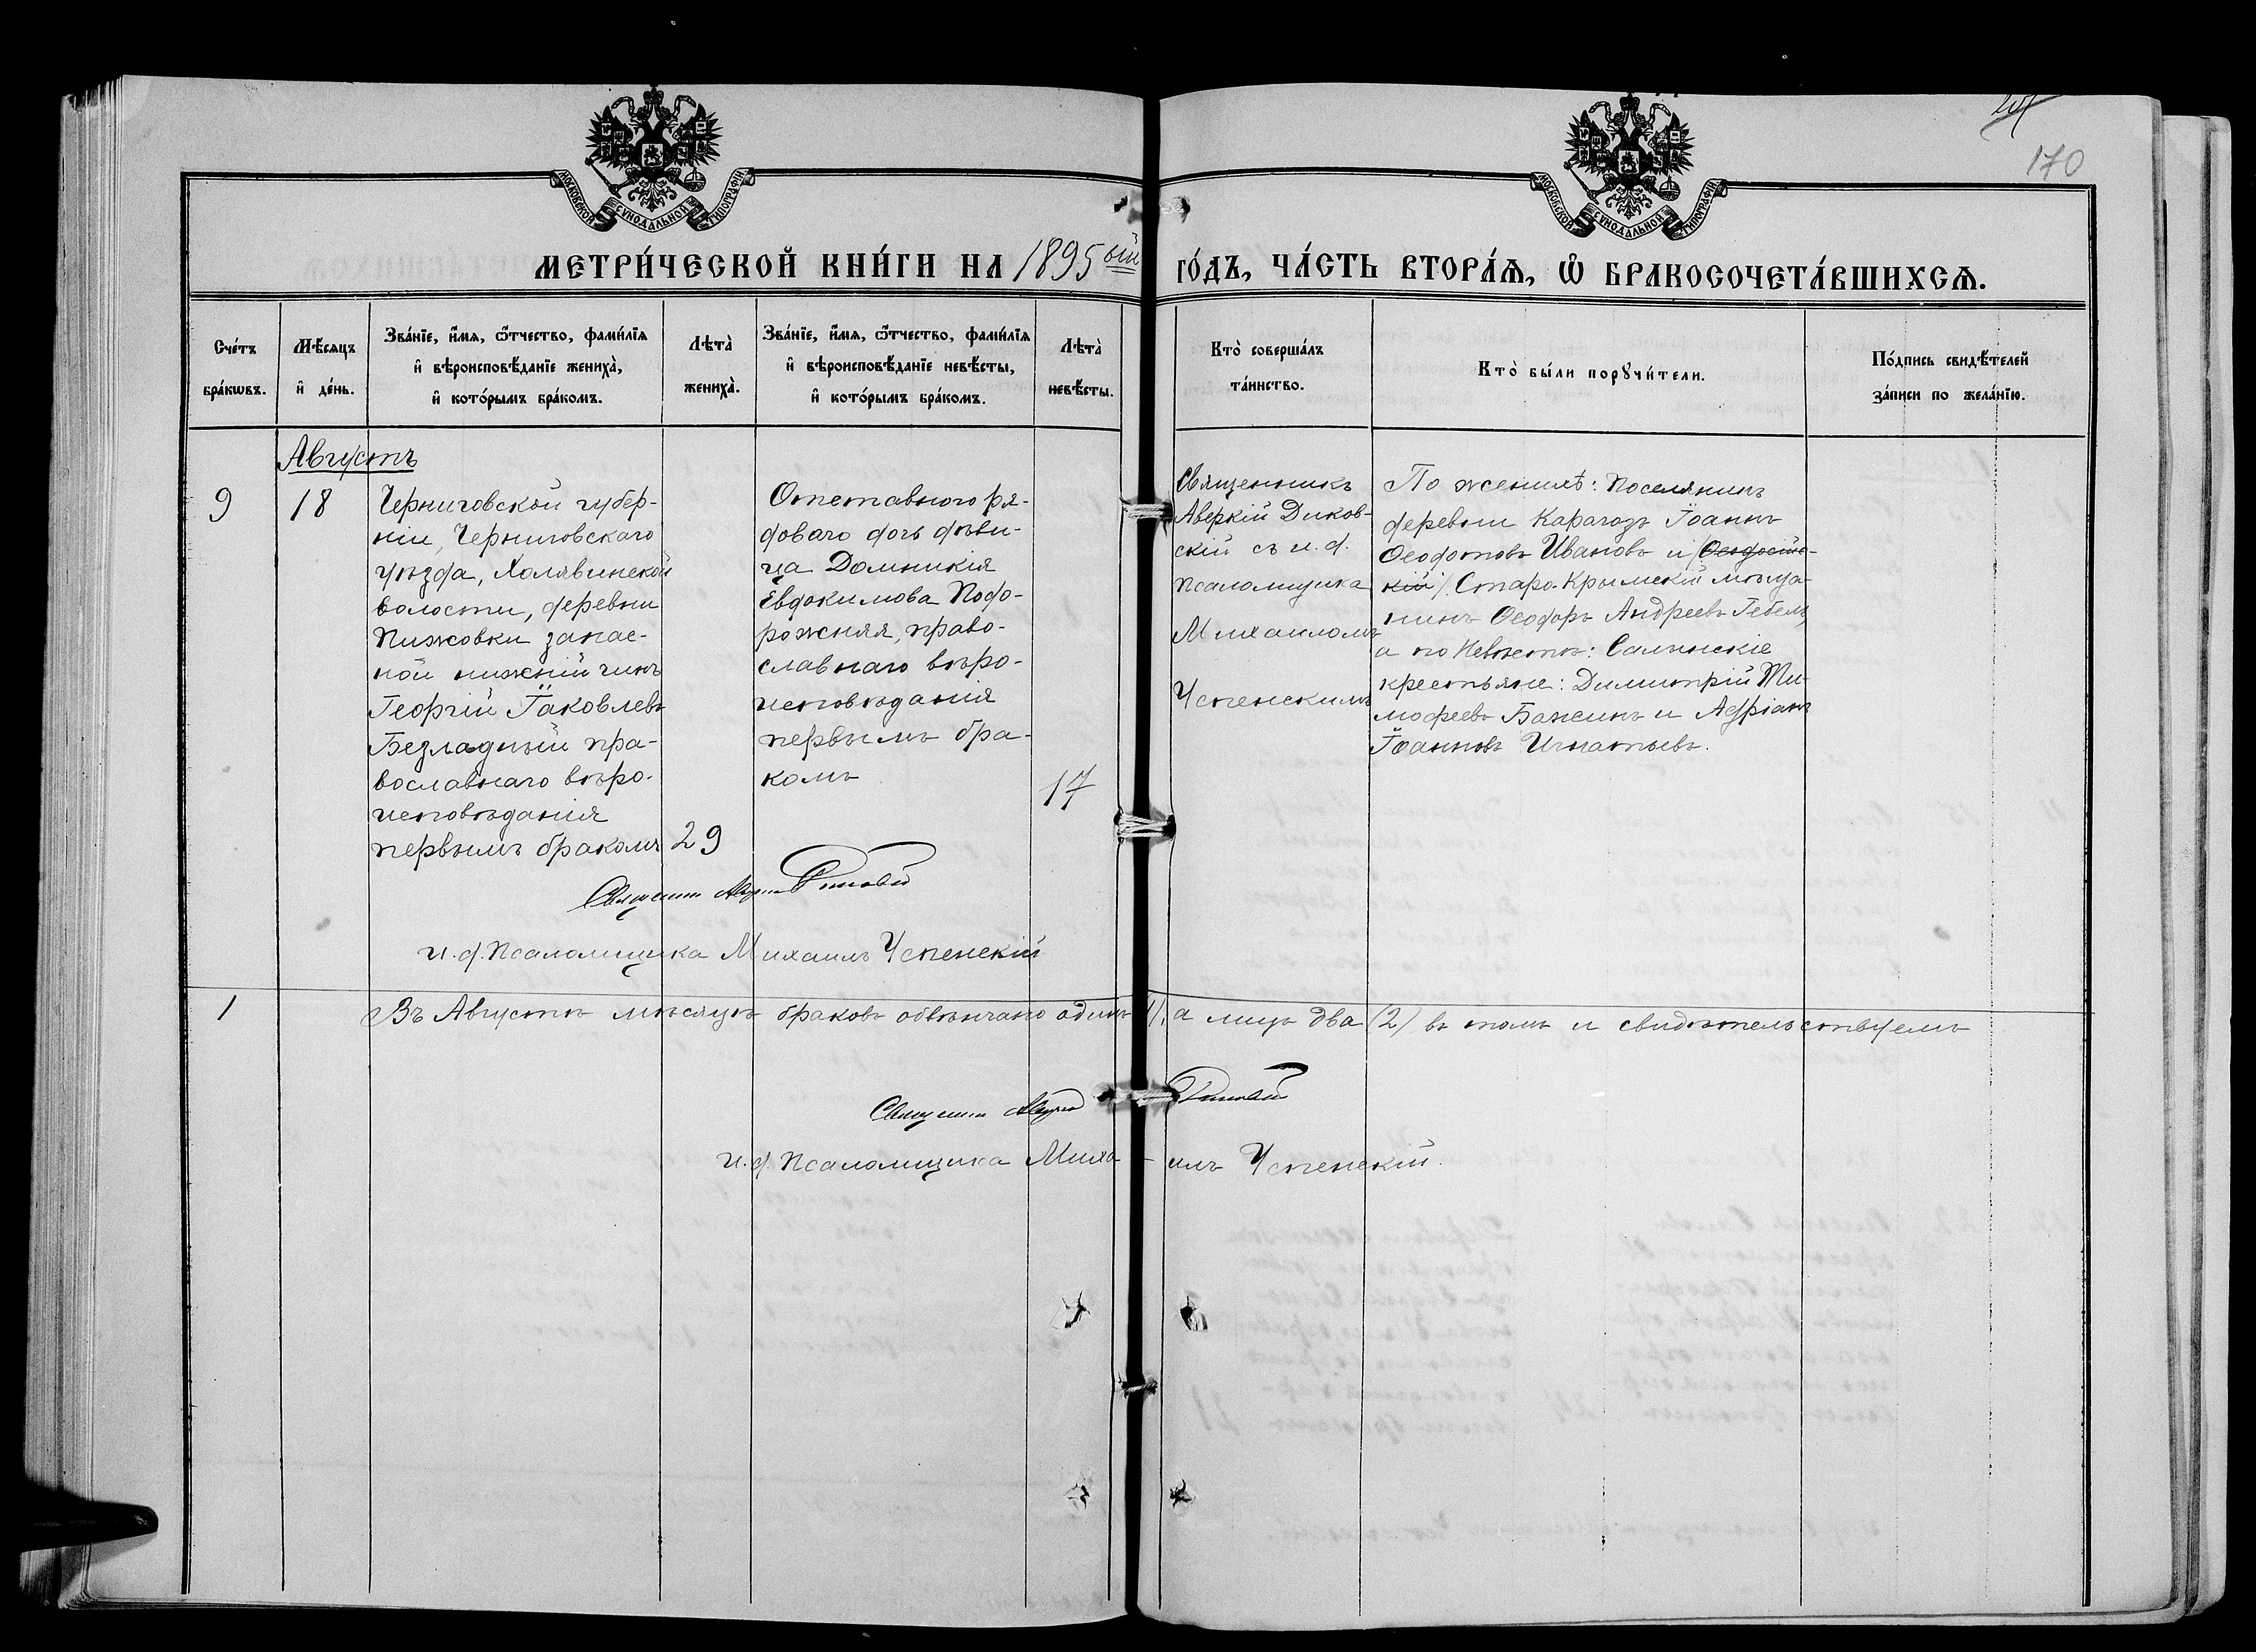 170
МОСКОВСКОЙ СУНОДАЛЬНОЙ ТИПОГРАФІИ
МОСКОВСКОЙ СУНОДАЛЬНОЙ ТИПОГРАФІИ
МЕТРИ́ЧЕСКОЙ КНИ́ГИ НА 1895ый ГО́ДЪ, ЧА́СТЬ ВТОРА́Ѧ, Ѽ БРАКОСОЧЕТА́ВШИХСѦ.
Сче́тъ
бра́кѡвъ.
Мѣ́сяцъ
и҆ де́нь.
Зва́нїе, и҆́мя, ѻ҆́тчество, фами́лїя
и҆ вѣроисповѣ́данїе жениха̀,
и҆ кото́рымъ бра́комъ.
Лѣта̀
жениха̀.
Зва́нїе, и҆́мя, ѻ҆́тчество, фами́лїя
и҆ вѣроисповѣ́данїе невѣ́сты,
и҆ кото́рымъ бра́комъ.
Лѣта̀
невѣ́сты.
Кто̀ соверша́лъ
та́инство.
Кто̀ бы́ли порꙋчи́тели.
По́дпись свидѣ́телей
за́писи по жела́нїю.
Августъ
9
18
Черниговской губер-
ніи, Черниговскаго
уѣзда, Холявинской
волости, деревни
Пижовки запас-
ной нижній чинъ
Георгій Іаковлевъ
Безладный пра-
вославнаго вѣро-
исповѣданія
первымъ бракомъ
29
Отставного ря-
дового дочь дѣви-
ца Домникія
Евдокимова Подо-
рожняя, право-
славнаго вѣро-
исповѣданія
первымъ бра-
комъ
17
Священникъ
Аверкій Диков-
скій съ и. д.
псаломщика
Михаиломъ
Успенскимъ
По женихѣ: поселянинъ
деревни Карагозъ Іоаннъ
Ѳеодотовъ Ивановъ и (Ѳеодосій-
кій). Старо-Крымскій мѣща-
нинъ Ѳеодоръ Андреевъ Гебель,
а по Невѣстѣ: Салынскіе
крестьяне: Димитрій Ти-
мофеевъ Бажинъ и Адріанъ
Іоанновъ Игнатьевъ.
Священникъ Аверкій Диковскій
и. д. псаломщика Михаилъ Успенскій
1
Въ Августѣ мѣсяцѣ браковъ обвѣнчано одинъ (1), а лицъ два (2) въ томъ и свидѣтельствуемъ
Священникъ Аверкій Диковскій
и. д. псаломщика Миха-илъ Успенскій.